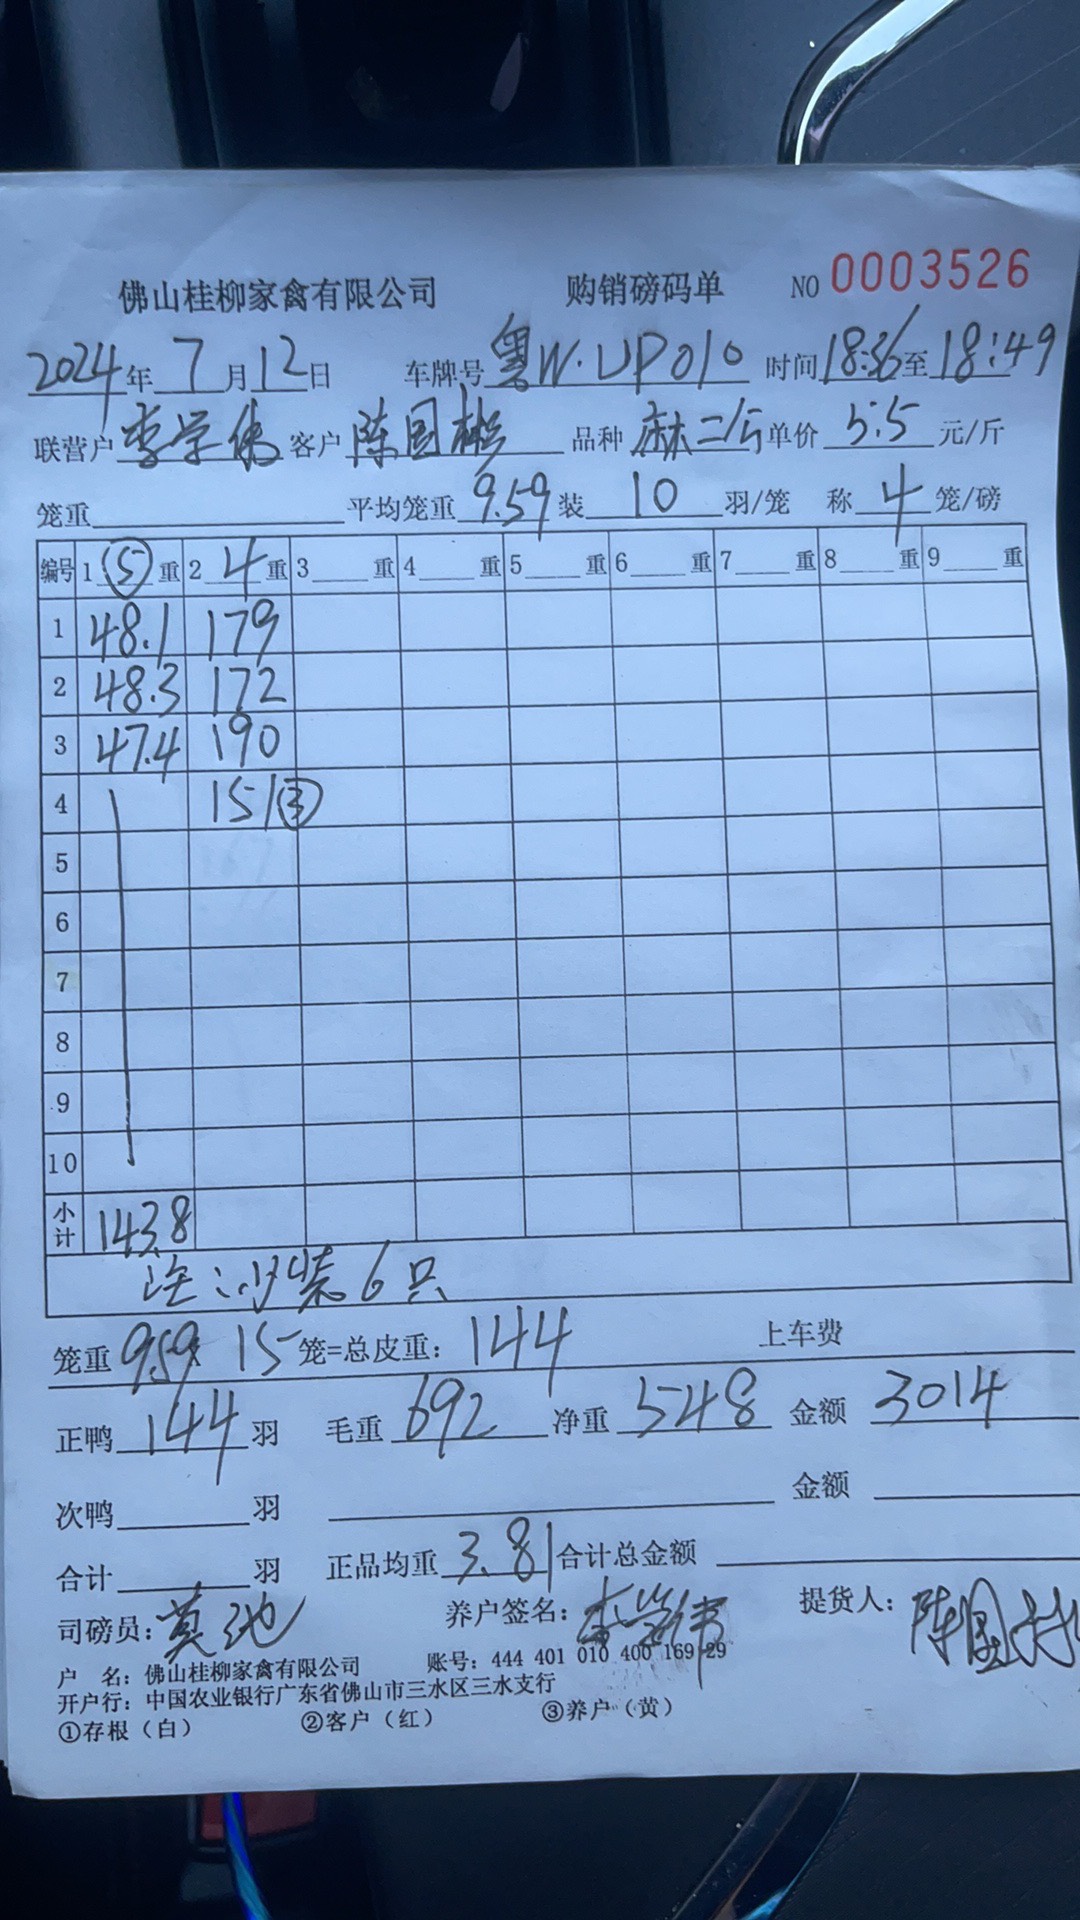 佛山桂柳家禽有限公司 购销磅码单 NO 0003526
2024年 7月 12日 车牌号 粤W·UP010 时间 18:36 至 18:49
联营户 李学伟 客户 陈国彬 品种 麻二 单价 5.5 元/斤
笼重 平均笼重 9.59 装 10 羽/笼 称 4 笼/磅
编号 1 ⑤ 重 2 4 重 3 重 4 重 5 重 6 重 7 重 8 重 9 重
1 48.1 179
2 48.3 172
3 47.4 190
4 151 ③
5
6
7
8
9
10
小计 143.8
注:少装6只
笼重 9.59 × 15 笼=总皮重: 144 上车费
正鸭 144 羽 毛重 692 净重 548 金额 3014
次鸭 羽 金额
合计 羽 正品均重 3.81 合计总金额
司磅员: 莫池 养户签名: 李学伟 提货人: 陈国
户 名: 佛山桂柳家禽有限公司 账号: 444 401 010 400 169 29
开户行: 中国农业银行广东省佛山市三水区三水支行
①存根(白) ②客户(红) ③养户(黄)